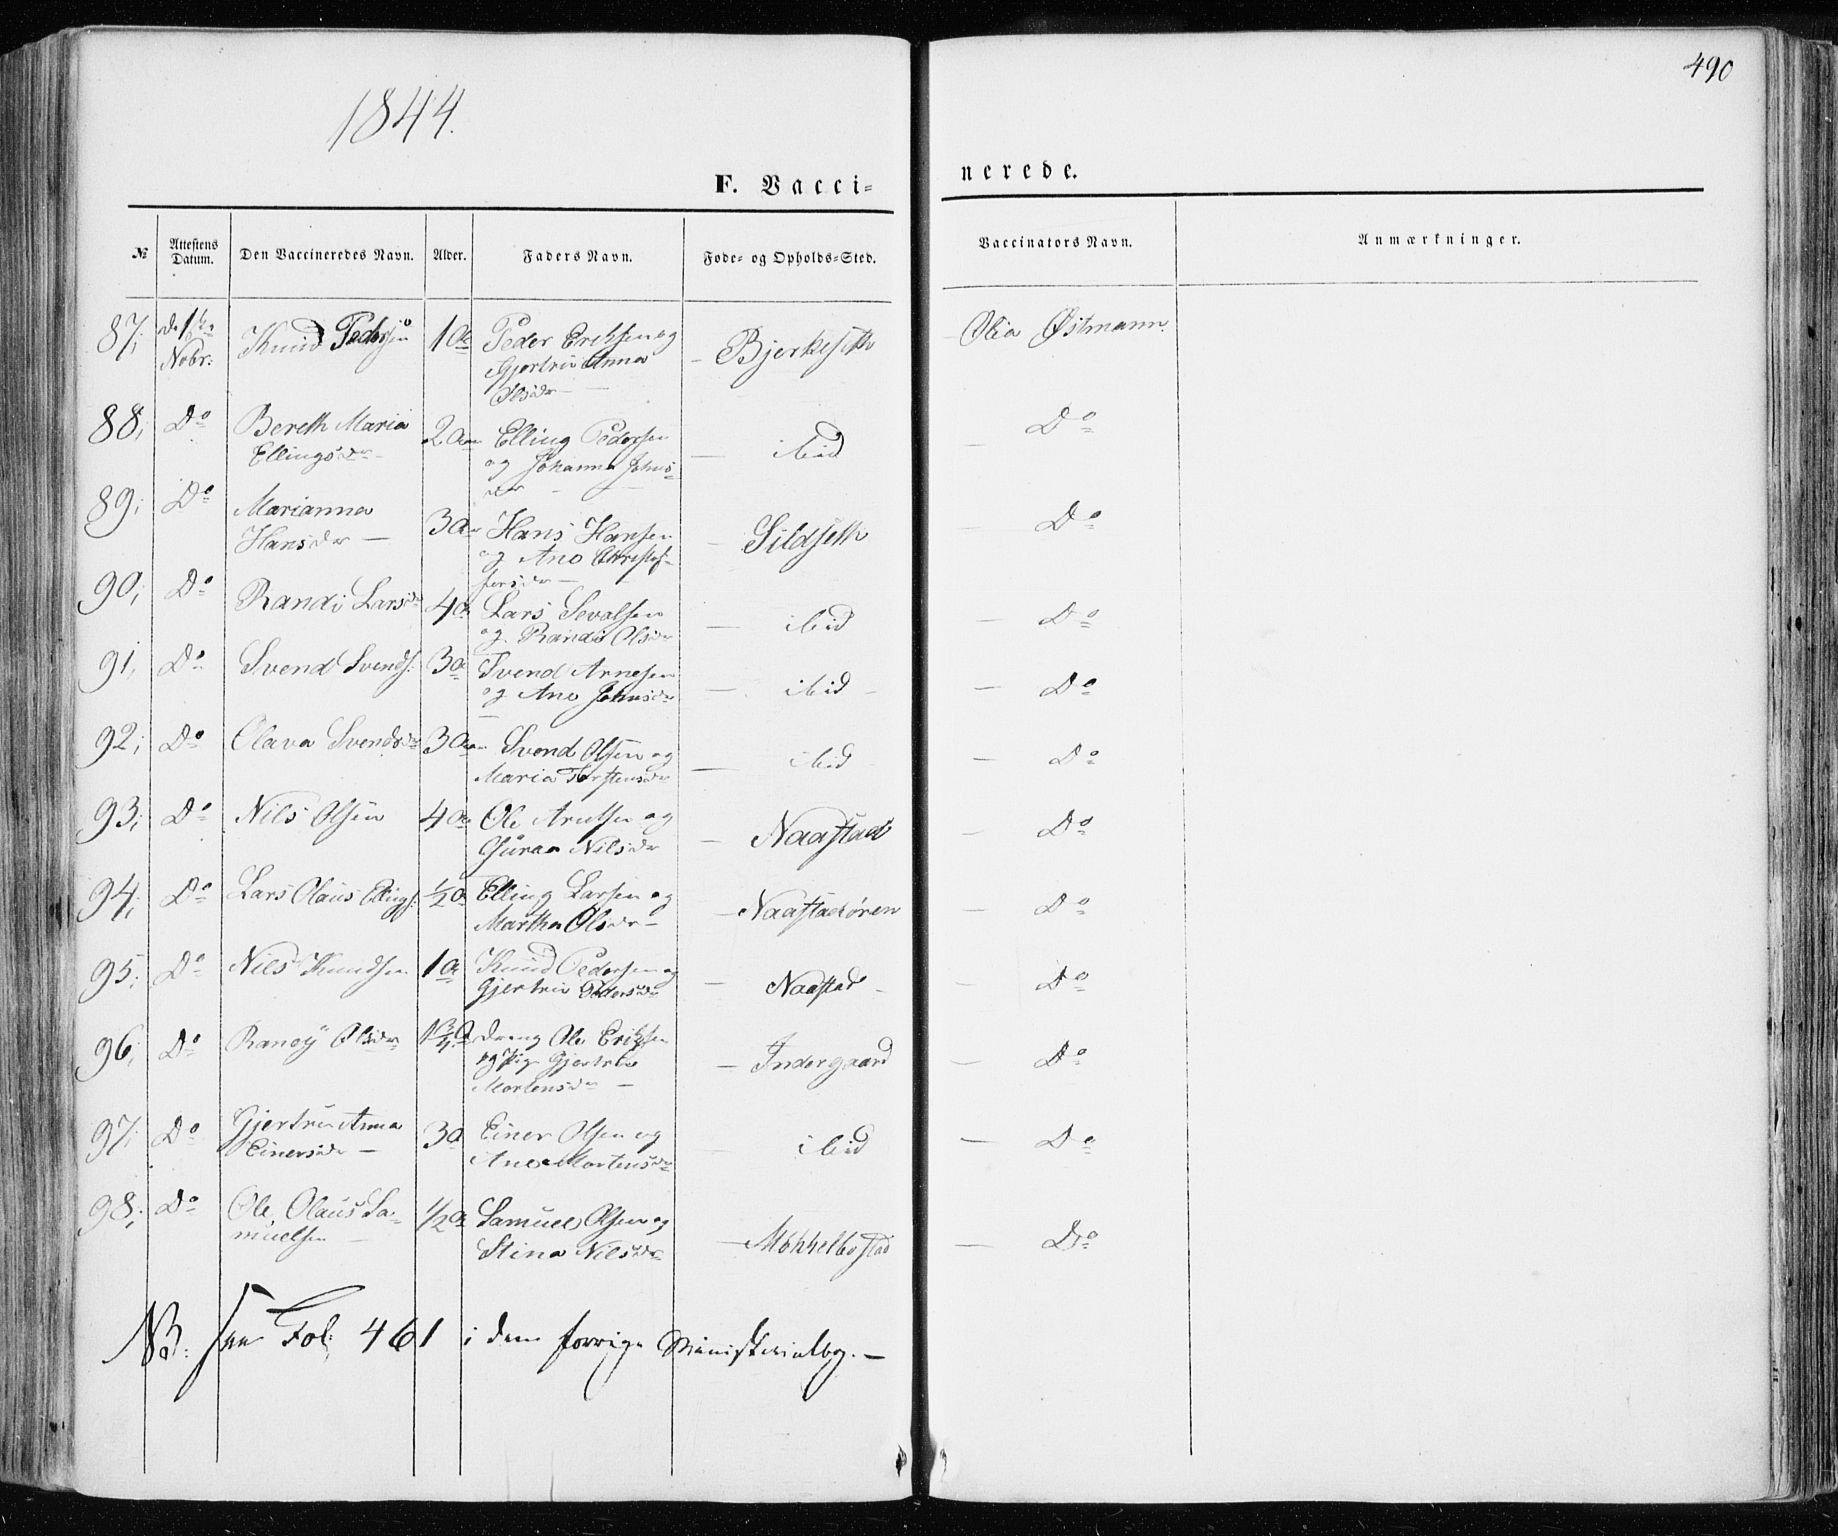 490
1844.
F. Vacci=
nerede.
№ Attestens Datum. Den Vaccineredes Navn. Alder. Faders Navn. Føde- og Opholds-Sted. Vaccinators Navn. Anmærkninger.
87; Knud Peder 1 a Peder Eriksen og — Bjerkeseth — Olia Østmann.
Nobr: Gjertru Anna
Olsdr —
88; Do Bereth Maria 2 Elling Pedersen — ibid — Do
Ellingsdr — og Johanna Johns
dr —
89; Do Marianna 3 a Hans Hansen — Sildseth — Do
Hansdr — og Ane Christof-
fersdr —
90; Do Randi Larsdr 4 a Lars Sevalsen — ibid — Do
og Randi Olsdr
91, Do Svend Svends. 3 a Svend Arnesen — ibid — — Do
og Ane Johnsdr
92; Do Olava Svendsdr 3 a Svend Olsen og — ibid — Do
Maria Torstensdr
93; Do Nils Olsen 4 a Ole Arntsen og — Naastad — Do
Guraa Nilsdr
94; Do Lars Olaus Ellings. 1/2 a Elling Larsen og — Naastadøren — Do
Martha Olsdr —
95; Do Nils Knudsen 1 a Knud Pedersen og — Naastad — — Do
Gjertru Pedersdr
96; Do Raney Olsdr 1 3/4 a dreng Ole Eriksen — Indergaard — Do
og Pige Gjertru
Mortensdr —
97; Do Gjertru Anna 3 a Einer Olsen og — ibid — Do
Einersdr — Ane Mortensdr
98; Do Ole Olaus Sa- 1/2 a Samuel Olsen og — Mokkelbostad — Do
muelsen — Stina Nilsdr
NB: see Fol: 461 i den forrige Ministerialbog. —